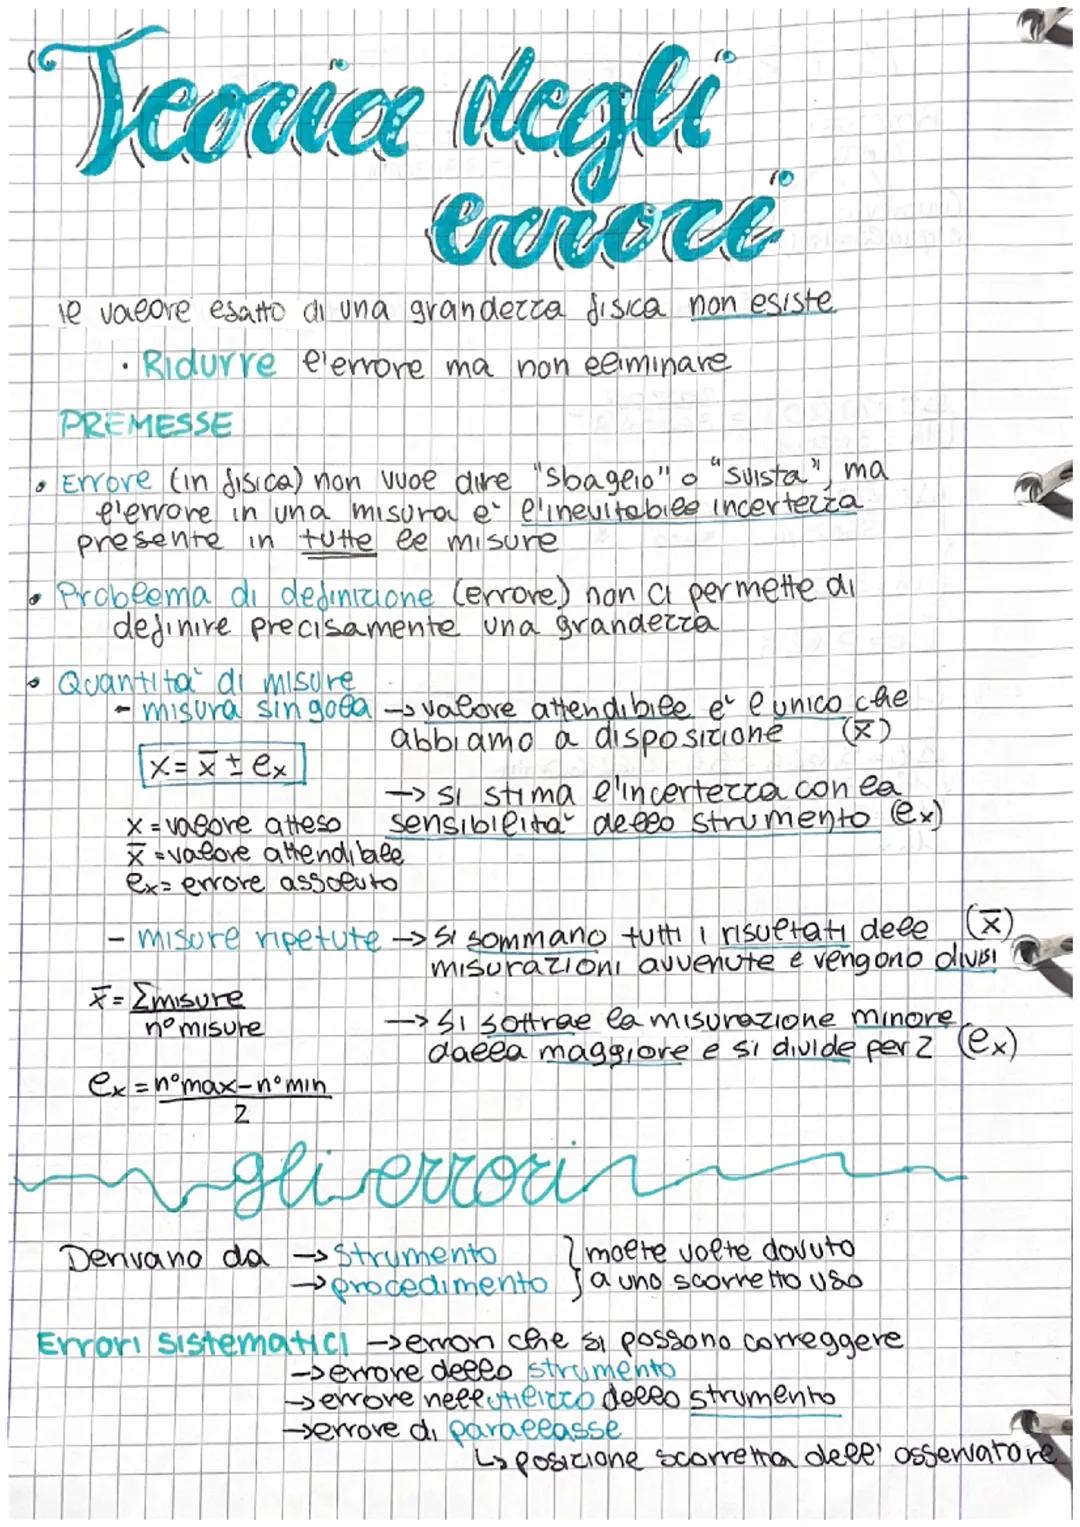 Teoria degli
errori
il valore esatto di una grandezza fisica non esiste
· Ridurre l'errore ma non eliminare
PREMESSE
• Errore (in fisica) non vuole dire "sbaglio" o "svista", ma
l'errore in una misura è l'inevitabile incertezza
presente in tutte le misure
• Problema di definizione (errore) non ci permette di
definire precisamente una grandezza
• Quantità di misure
- misura singola → valore attendibile è l'unico che
abbiamo a disposizione (x̄)
x = x̄ ± ex
→ si stima l'incertezza con la
sensibilità dello strumento (ex)
x = valore atteso
x̄ = valore attendibile
ex = errore assoluto
- misure ripetute → si sommano tutti i risultati delle (x̄)
misurazioni avvenute e vengono divisi
x̄ = Σmisure
n° misure
→ si sottrae la misurazione minore
dalla maggiore e si divide per 2 (ex)
ex = n°max - n°min
2
gli errori
Derivano da → strumento } molte volte dovuto
→ procedimento } a uno scorretto uso
Errori sistematici → errori che si possono correggere
→ errore dello strumento
→ errore nell'utilizzo dello strumento
→ errore di parallasse
↳ posizione scorretta dell'osservatore